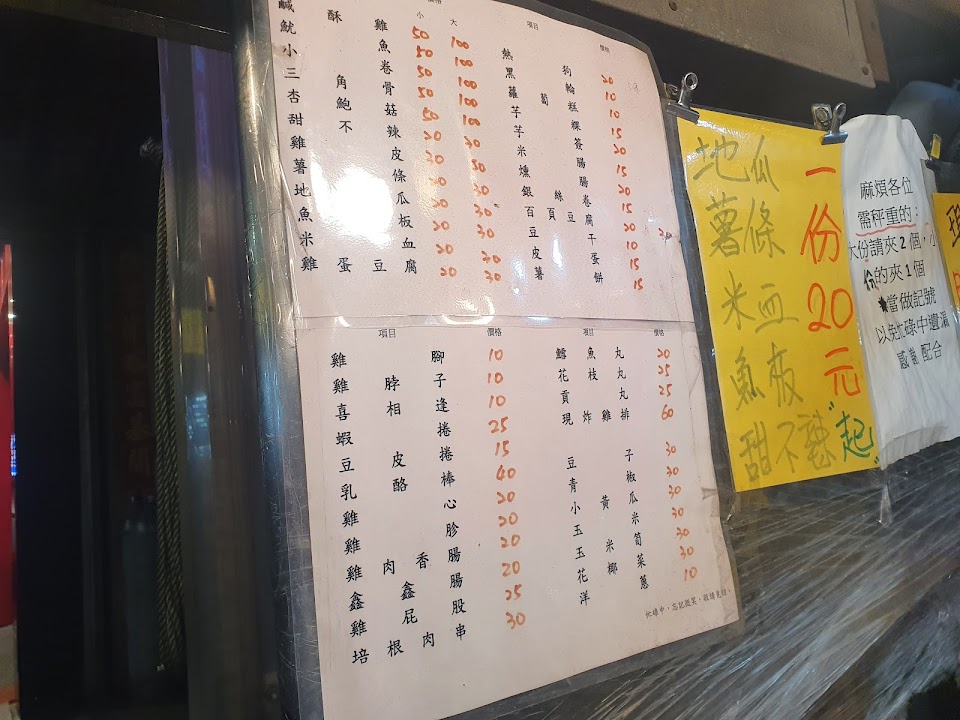 價格
小 大 項目 價格
鹹酥雞 50 100
魷魚 50 100
小卷 50 100
三角骨 50 100
杏鮑菇 50
甜不辣 20
雞皮 20 30
薯條 20 30
地瓜 20 30
魚板 20 30
米血 20 30
雞蛋豆腐 20 30
熱狗 20
黑輪 10
蘿蔔糕 10
芋粿 15
芋簽 20
米腸 15
燻腸 20
銀絲卷 15
百頁豆腐 20
豆干 10
皮蛋 15
薯餅 15
項目 價格 項目 價格
雞腳 10
雞脖子 10
喜相逢 10
蝦捲 25
豆皮捲 15
乳酪棒 40
雞心 20
雞胗 20
雞肉香腸 20
鑫鑫腸 20
雞屁股 25
培根肉串 30
鱈魚丸 20
花枝丸 25
貢丸 25
現炸雞排 60
豆子 30
青椒 30
小黃瓜 30
玉米 30
玉米筍 30
花椰菜 30
洋蔥 10
忙碌中，忘記微笑，敬請見諒
地瓜
薯條
米血
魚板
甜不辣
一份20元"起"
麻煩各位
需秤重的：
大份請夾2個，小
份的夾1個
當做記號
以免忙碌中遺漏
感謝配合